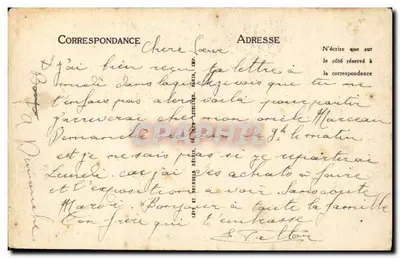 CORRESPONDANCE
ADRESSE
N'écrire que sur
le côté réservé à
la correspondance
Chère Sœur
j'ai bien reçu ta lettre à
midi dans laquelle je vois que tu ne
pas alors voilà pour partir
j'arriverai chez mon oncle Marceau
Dimanche 9h le matin
et je ne sais pas si je repartirai
Lundi car j'ai des achats à faire
et l'exposition à voir sans doute
Mardi. Bonjour à toute la famille
Ton frère qui t'embrasse
LÉVY ET NEURDEIN RÉUNIS, PARIS, IMP.
Bons
à Dimanche
CPAPHIL